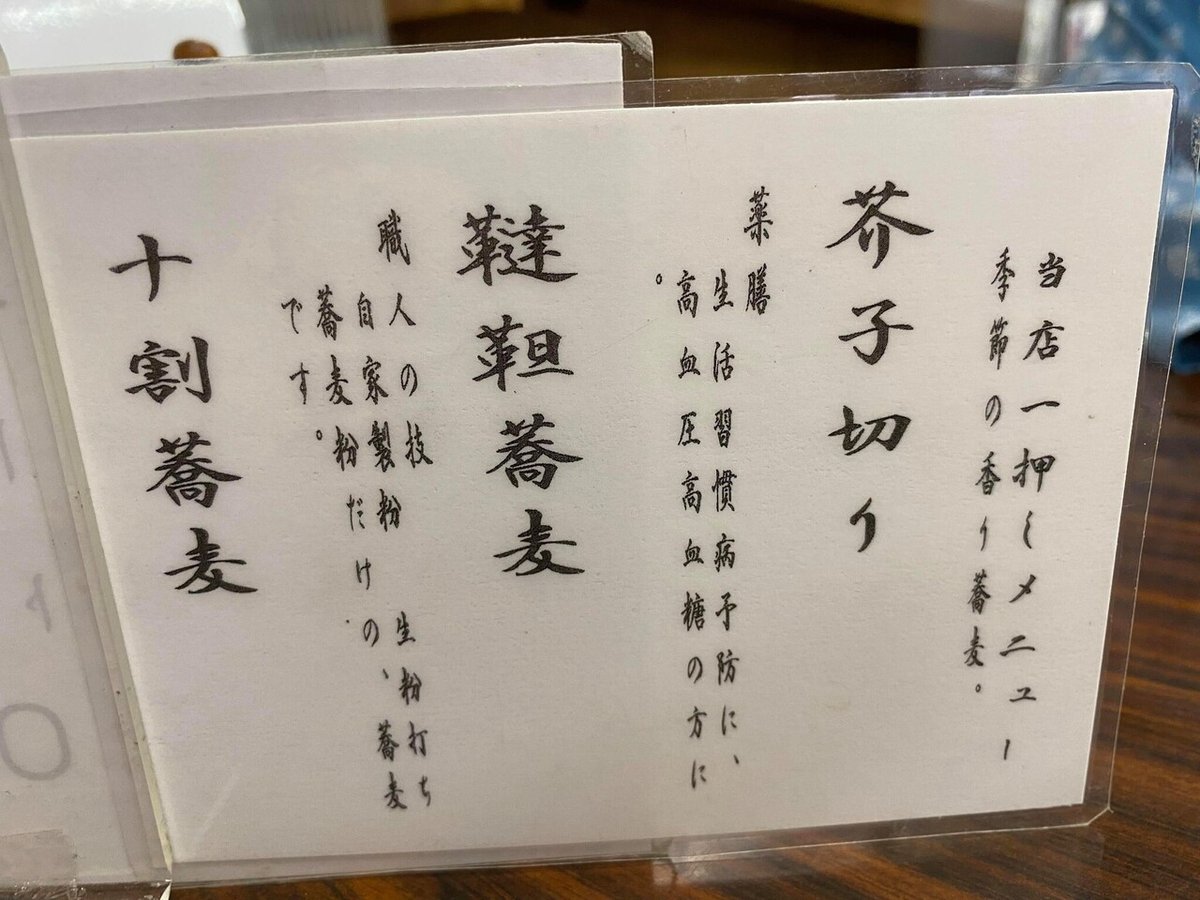 当店一押しメニュー
季節の香り蕎麦。
芥子切り
薬膳
生活習慣病予防に、
高血圧高血糖の方に
。
韃靼蕎麦
職人の技 生粉打ち
自家製粉
蕎麦粉だけの、蕎麦
です。
十割蕎麦